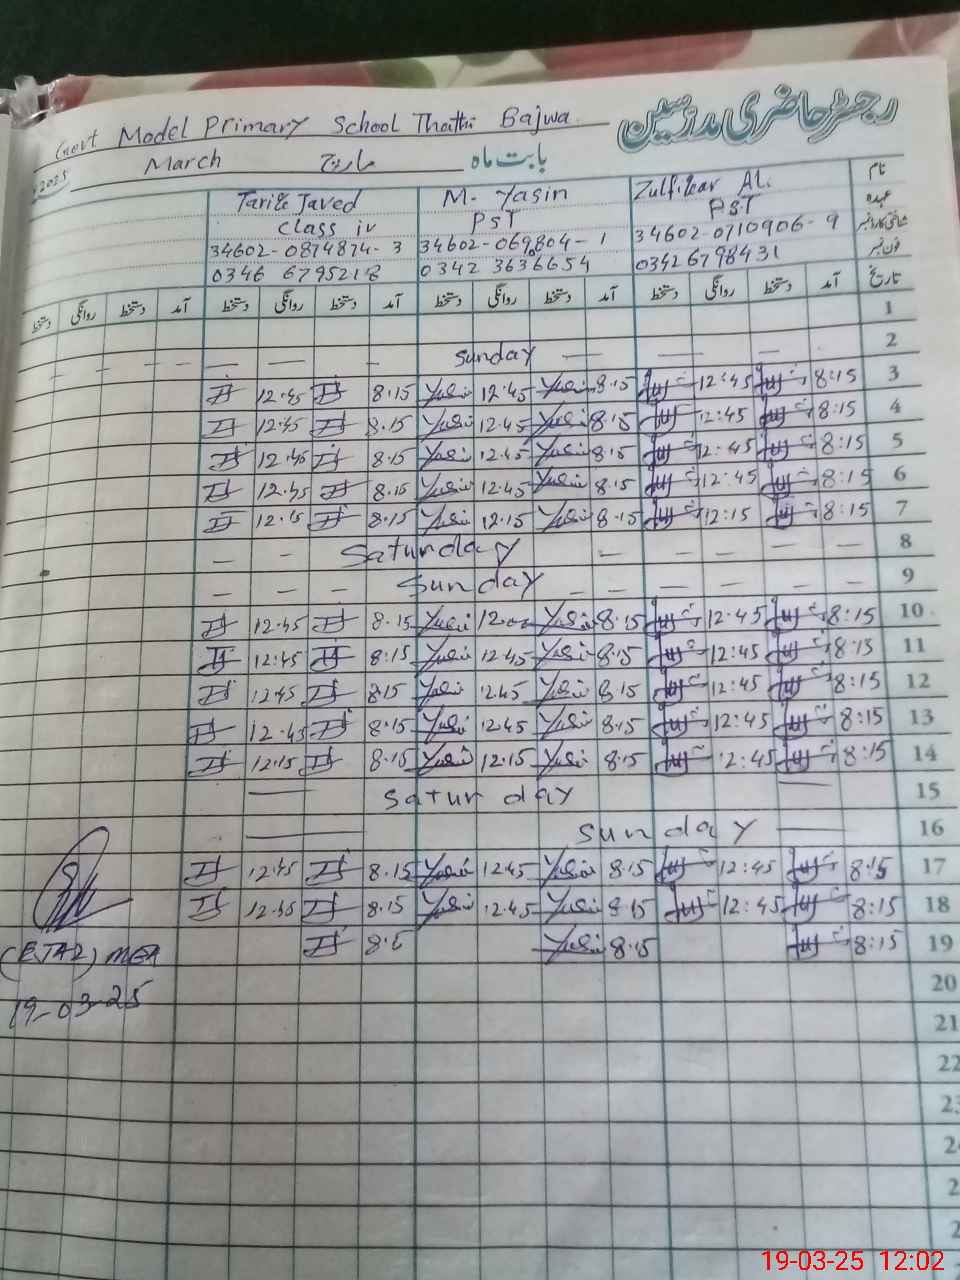 رجسٹر حاضری مدرسین
Govt Model Primary School Thathi Bajwa
2025 March مارچ بابت ماہ
Tariq Javed M. Yasin Zulfiqar Ali نام
Class iv PST PST عہدہ
34602-0874874-3 34602-069804-1 34602-0710906-9 شناختی کارڈ نمبر
0346 6795218 0342 3636654 03426798431 فون نمبر
دستخط روانگی دستخط آمد دستخط روانگی دستخط آمد دستخط روانگی دستخط آمد دستخط روانگی دستخط آمد تاریخ
1
— — — — — — — Sunday — — — 2
12.45 8.15 Yasin 12.45 Yasin 8.15 12:45 8:15 3
12.45 8.15 Yasin 12.45 Yasin 8.15 12:45 8:15 4
12.45 8.15 Yasin 12.45 Yasin 8.15 12:45 8:15 5
12.45 8.15 Yasin 12.45 Yasin 8.15 12:45 8:15 6
12.15 8.15 Yasin 12.15 Yasin 8.15 12:15 8:15 7
— — Saturday — — — — — 8
— — — Sunday — — — — — — 9
12.45 8.15 Yasin 12.00 Yasin 8.15 12:45 8:15 10
12:45 8:15 Yasin 12.45 Yasin 8.15 12:45 8:15 11
12.45 8.15 Yasin 12.45 Yasin 8.15 12:45 8:15 12
12.45 8.15 Yasin 12.45 Yasin 8.15 12:45 8:15 13
12.15 8.15 Yasin 12.15 Yasin 8.15 12:45 8:15 14
— Saturday — 15
— Sunday — 16
12.45 8.15 Yasin 12.45 Yasin 8.15 12:45 8:15 17
12.45 8.15 Yasin 12.45 Yasin 8.15 12:45 8:15 18
8.15 Yasin 8.15 8:15 19
MEA
19-03-25
20
21
22
23
19-03-25 12:02